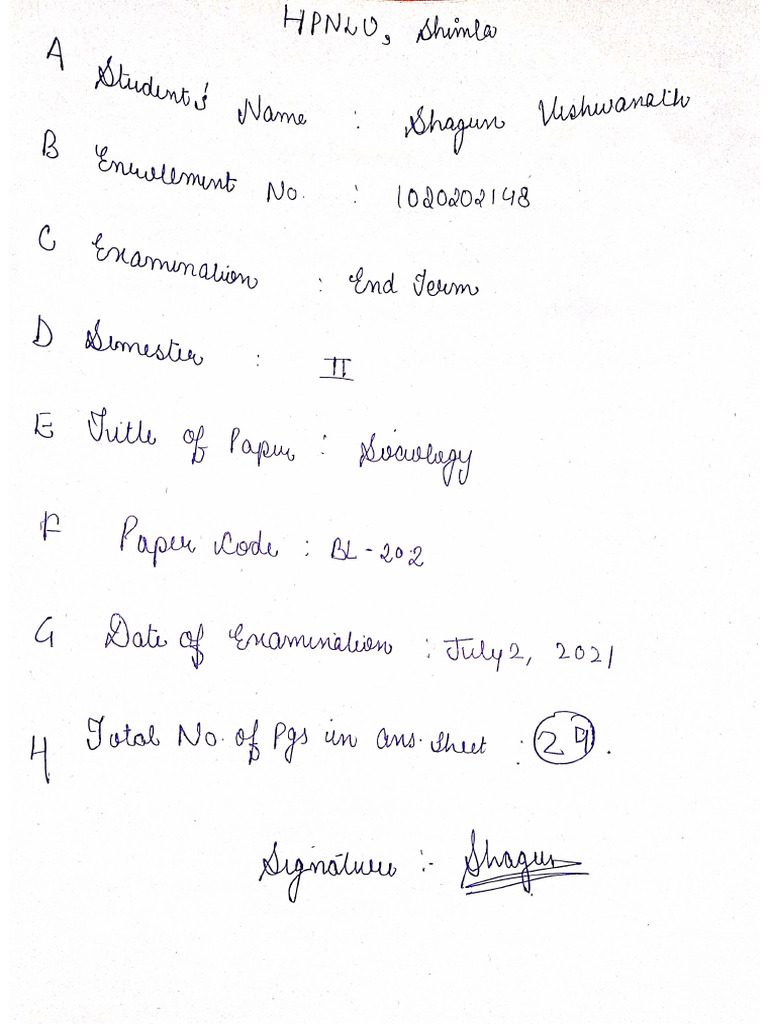 HPNLU, Shimla
A Student's Name : Shagun Vishwanath
B Enrollement No. : 1020202148
C Examination : End Term
D Semester : II
E Tittle of Paper : Sociology
F Paper Code : BL-202
G Date of Examination : July 2, 2021
H Total No. of Pgs in ans. sheet : 29.
Signature :- Shagun